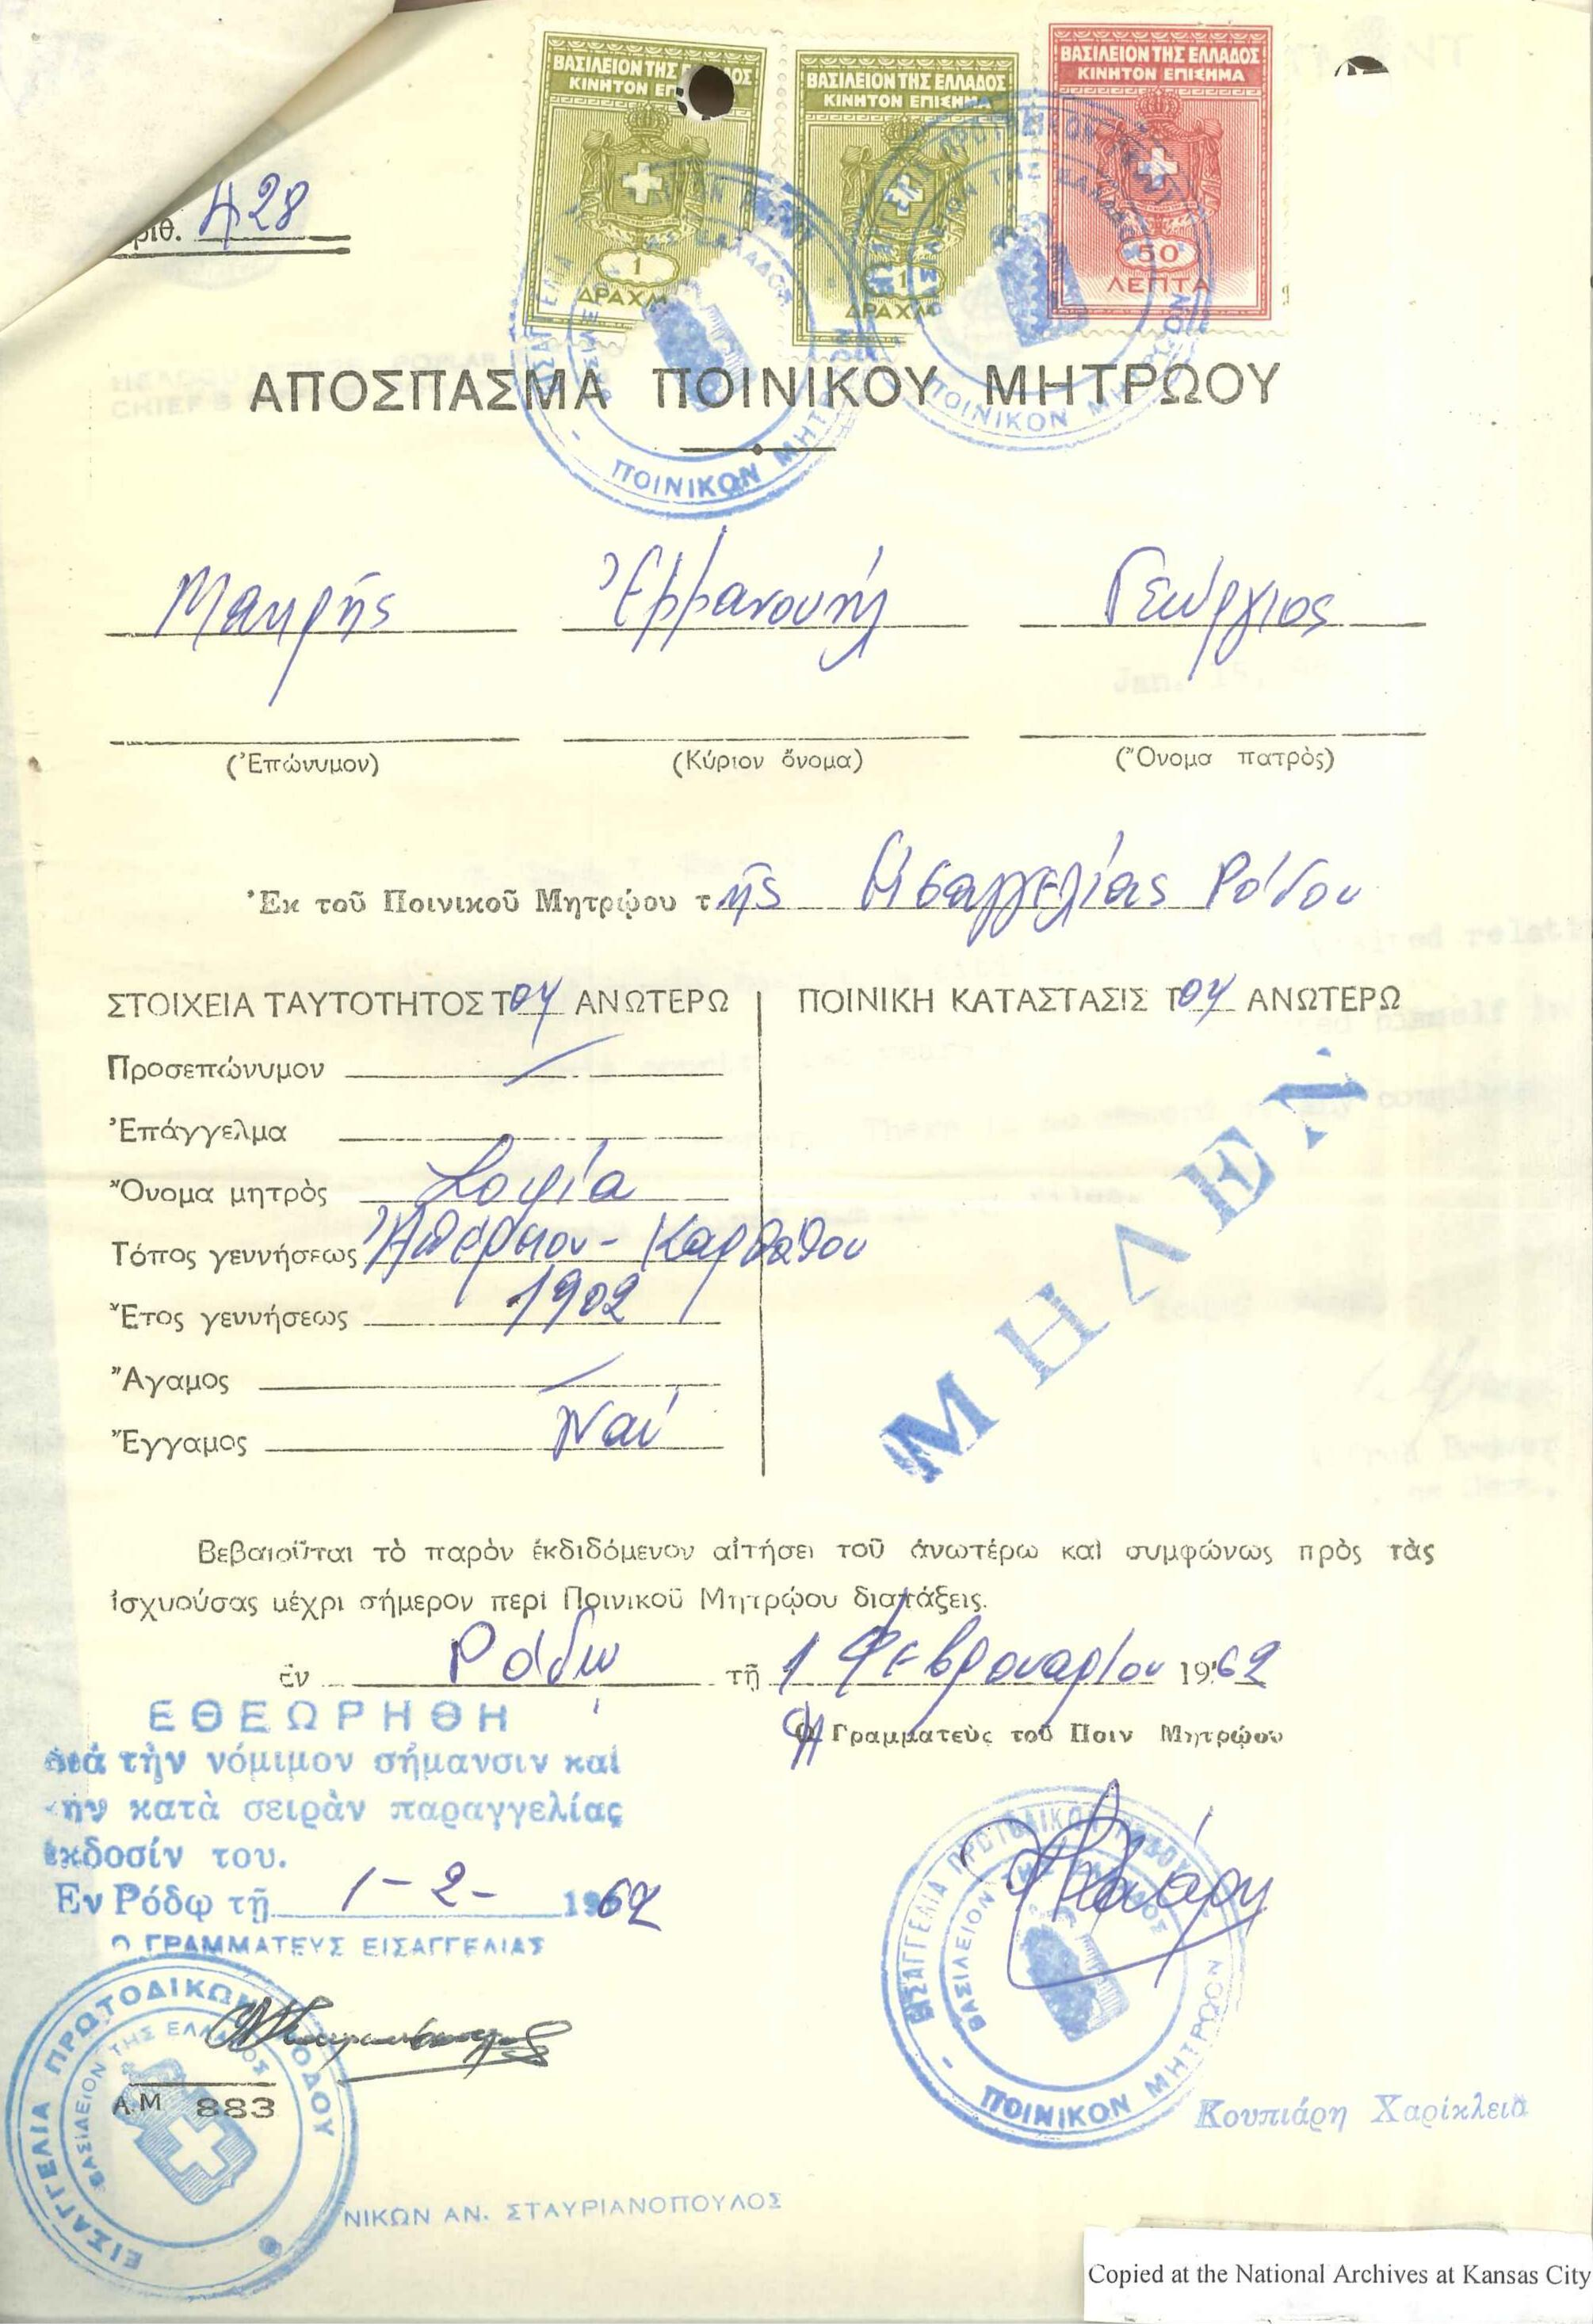 ΒΑΣΙΛΕΙΟΝ ΤΗΣ ΕΛΛΑΔΟΣ
ΚΙΝΗΤΟΝ ΕΠΙΣΗΜΑ
1
ΔΡΑΧΜ
ΒΑΣΙΛΕΙΟΝ ΤΗΣ ΕΛΛΑΔΟΣ
ΚΙΝΗΤΟΝ ΕΠΙΣΗΜΑ
1
ΔΡΑΧΜ
ΒΑΣΙΛΕΙΟΝ ΤΗΣ ΕΛΛΑΔΟΣ
ΚΙΝΗΤΟΝ ΕΠΙΣΗΜΑ
50
ΛΕΠΤΑ
ριθ. 428
ΑΠΟΣΠΑΣΜΑ ΠΟΙΝΙΚΟΥ ΜΗΤΡΩΟΥ
ΠΟΙΝΙΚΟΝ ΜΗΤΡ
ΠΟΙΝΙΚΟΝ ΜΗΤΡΩΟΝ
Μακρής Ἐμμανουήλ Γεώργιος
(Ἐπώνυμον) (Κύριον ὄνομα) (Ὄνομα πατρὸς)
Ἐκ τοῦ Ποινικοῦ Μητρῴου τῆς Εἰσαγγελίας Ρόδου
ΣΤΟΙΧΕΙΑ ΤΑΥΤΟΤΗΤΟΣ ΤΟΥ ΑΝΩΤΕΡΩ
ΠΟΙΝΙΚΗ ΚΑΤΑΣΤΑΣΙΣ ΤΟΥ ΑΝΩΤΕΡΩ
Προσεπώνυμον
Ἐπάγγελμα
Ὄνομα μητρὸς Σοφία
Τόπος γεννήσεως Ἀπέρειον - Καρπάθου
Ἔτος γεννήσεως 1902
Ἄγαμος
Ἔγγαμος Ναί
ΜΗΔΕΝ
Βεβαιοῦται τὸ παρὸν ἐκδιδόμενον αἰτήσει τοῦ ἀνωτέρω καὶ συμφώνως πρὸς τὰς
ἰσχυούσας μέχρι σήμερον περὶ Ποινικοῦ Μητρῴου διατάξεις.
ἐν Ρόδῳ τῇ 1 Φεβρουαρίου 1962
Η Γραμματεὺς τοῦ Ποιν Μητρῴου
ΕΘΕΩΡΗΘΗ
διὰ τὴν νόμιμον σήμανσιν καὶ
τὴν κατὰ σειρὰν παραγγελίας
ἔκδοσίν του.
Εν Ρόδῳ τῇ 1-2-1962
Ο ΓΡΑΜΜΑΤΕΥΣ ΕΙΣΑΓΓΕΛΙΑΣ
ΕΙΣΑΓΓΕΛΙΑ ΠΡΩΤΟΔΙΚΩΝ ΡΟΔΟΥ
ΒΑΣΙΛΕΙΟΝ ΤΗΣ ΕΛΛΑΔΟΣ
Α.Μ 883
ΕΙΣΑΓΓΕΛΙΑ ΠΡΩΤΟΔΙΚΩΝ ΡΟΔΟΥ
ΒΑΣΙΛΕΙΟΝ ΤΗΣ ΕΛΛΑΔΟΣ
ΠΟΙΝΙΚΟΝ ΜΗΤΡΩΟΝ
Κουπιάρη Χαρίκλεια
ΝΙΚΩΝ ΑΝ. ΣΤΑΥΡΙΑΝΟΠΟΥΛΟΣ
Copied at the National Archives at Kansas City